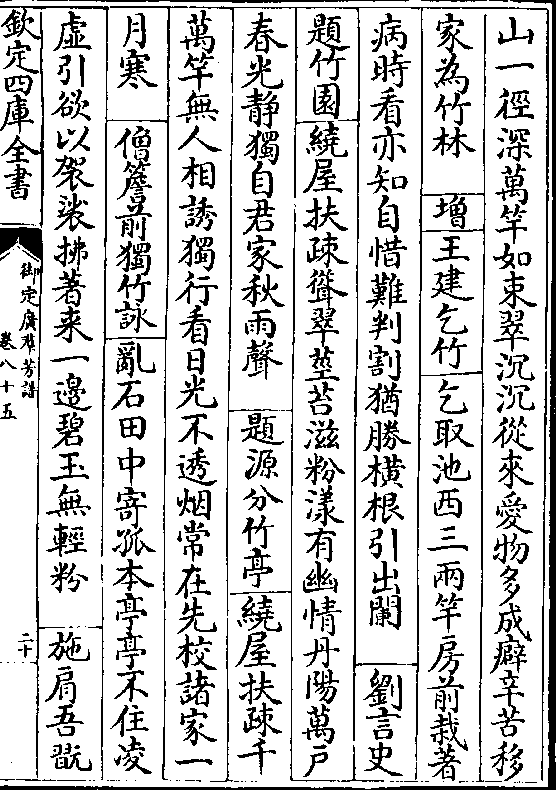 山一徑深萬竿如束翠沉沉從來愛物多成癖辛苦移
家為竹林　增　王建乞竹　乞取池西三兩竿房前栽著
病時看亦知自惜難判割猶勝橫根引出闌　劉言史
題竹園　繞屋扶疎聳翠莖苔滋粉漾有幽情丹陽萬戶
春光靜獨自君家秋雨聲　題源分竹亭　繞屋扶疎千
萬竿無人相誘獨行看日光不透烟常在先校諸家一
月寒　僧簷前獨竹詠　亂石田中寄孤本亭亭不住凌
虛引欲以袈裟拂著來一邊碧玉無輕粉　施肩吾翫
欽定四庫全書
御定廣羣芳譜
卷八十五
二十